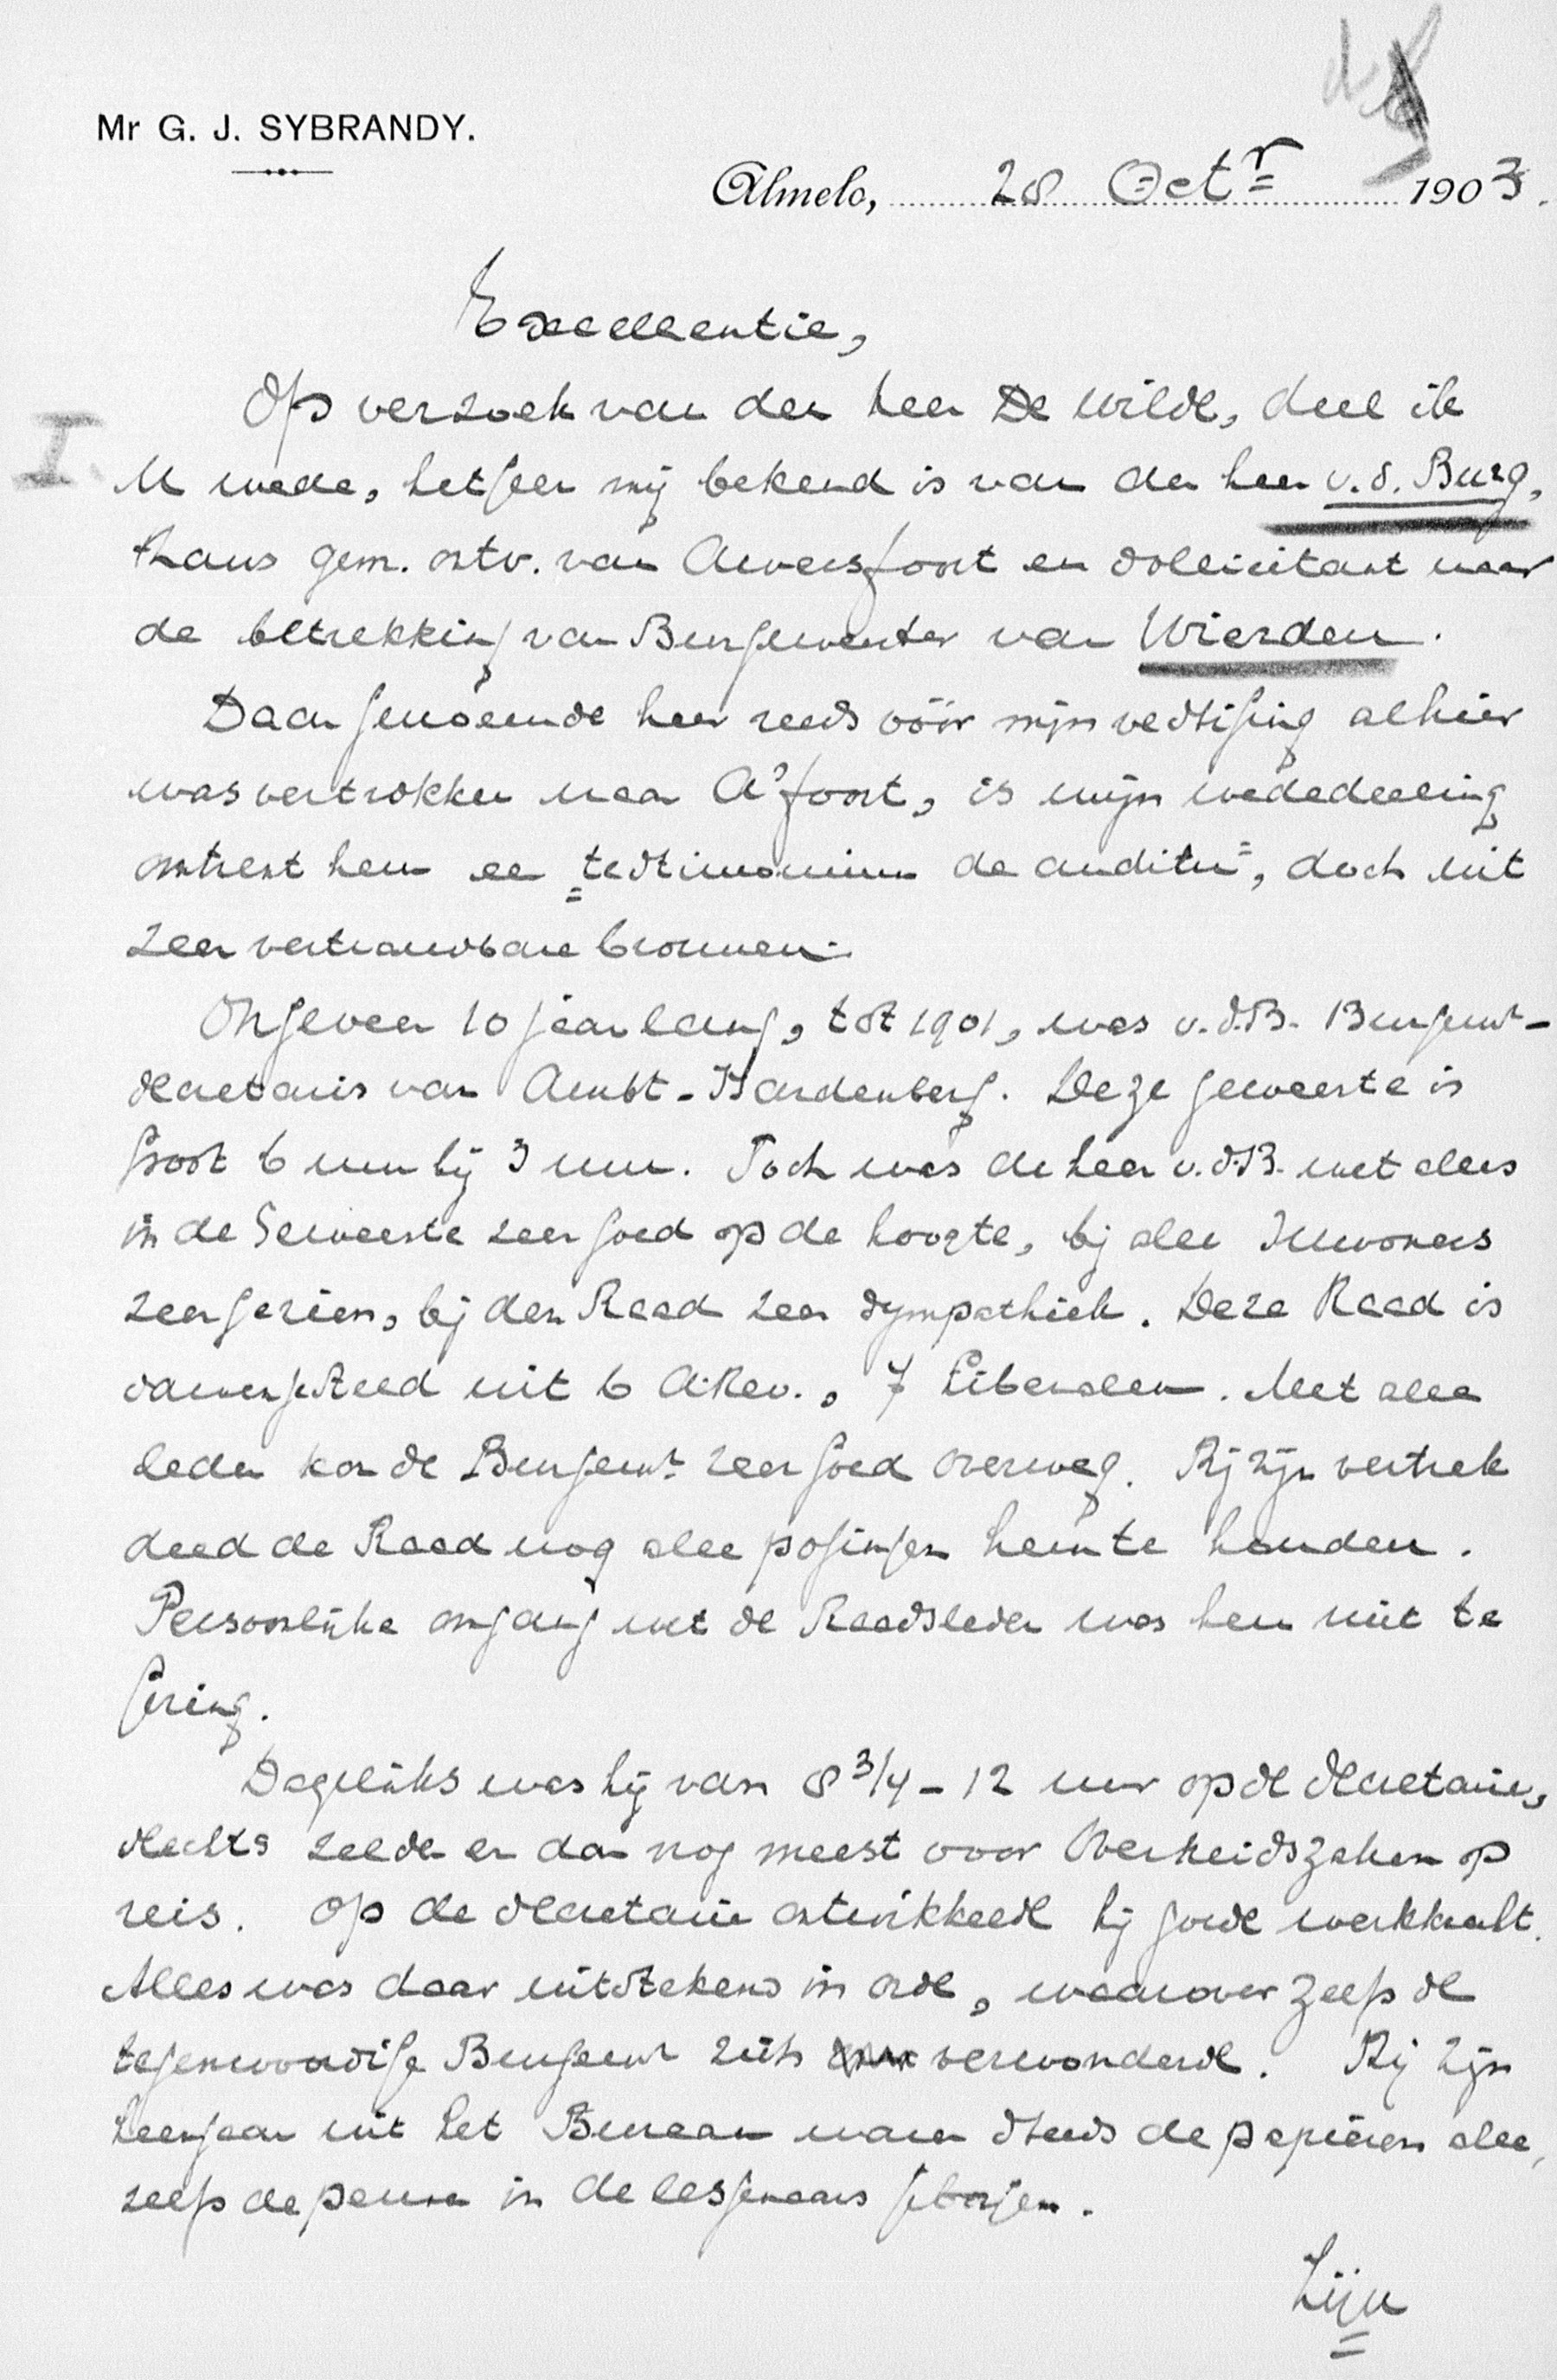 Mr G. J. SYBRANDY.
Almelo, 28 Octr 1903.
Excellentie,
Op verzoek van den heer De Wilde, deel ik
I. U mede, hetgeen mij bekend is van den heer v. d. Burg,
thans gem. ontv. van Amersfoort en sollicitant naar
de betrekking van Burgemeester van Wierden.
Daar genoemde heer reeds vóór mijn vestiging alhier
was vertrokken naar A'foort, is mijn mededeeling
omtrent hem een "testimonium de auditu", doch uit
zeer vertrouwbare bronnen.
Ongeveer 10 jaar lang, tot 1901, was v. d. B. Burgemr-
secretaris van Ambt-Hardenberg. Deze gemeente is
groot 6 uur bij 3 uur. Toch was de heer v. d. B. met alles
in de Gemeente zeer goed op de hoogte, bij alle Inwoners
zeer gezien, bij den Raad zeer sympathiek. Deze Raad is
samengesteld uit 6 A.Rev., 7 Liberalen. Met alle
leden kon de Burgemr zeer goed overweg. Bij zijn vertrek
deed de Raad nog alle pogingen hem te houden.
Persoonlijke omgang met de Raadsleden was hem niet te
gering.
Dagelijks was hij van 8 3/4 - 12 uur op de secretarie,
slechts zelden en dan nog meest voor Overheidszaken op
reis. Op de secretarie ontwikkelde hij goede werkkracht.
Alles was daar uitstekend in orde, waarover zelfs de
tegenwoordige Burgemr zich verwonderde. Bij zijn
heengaan uit het Bureau waren steeds de papieren alle,
zelfs de pennen in de lessenaars geborgen.
Zijn